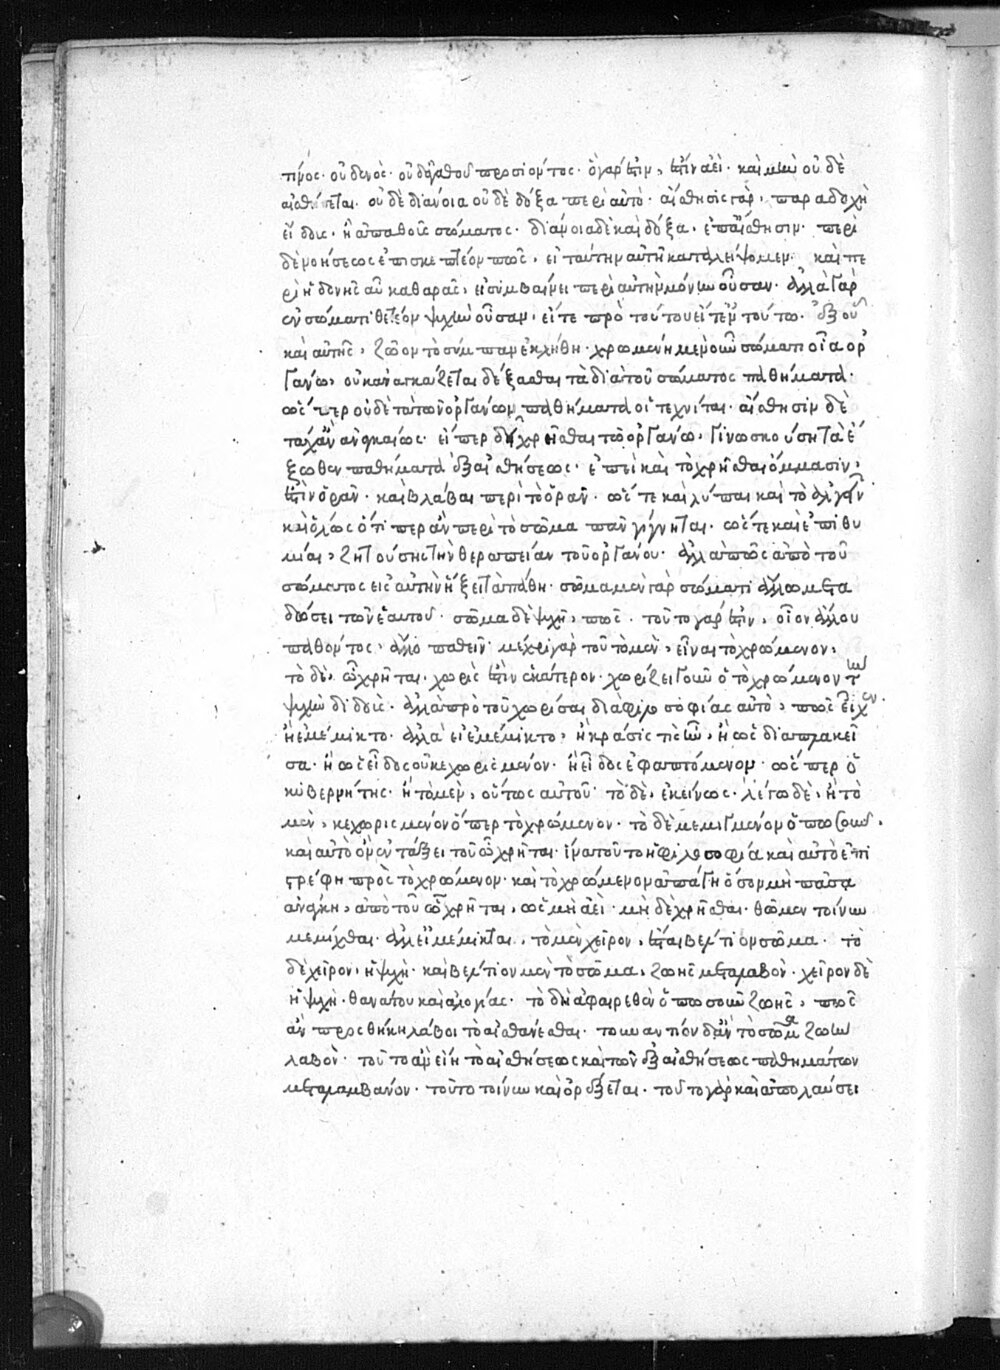 τινός· οὐδενὸς· οὐδἀγαθοῦ προσιόντος· ὃ γάρ ἐστιν, ἐστὶν ἀεὶ· καὶ μὴν οὐδὲ
αἰσθήσεται· οὐδὲ διάνοια οὐδὲ δόξα περὶ αὐτό· αἴσθησις γὰρ, παραδοχὴ
εἴδους· ἢ ἀπαθοῦς σώματος· διάνοια δὲ καὶ δόξα, ἐπαίσθησιν· περὶ
δὲ νοήσεως ἐπισκεπτέον πῶς, εἰ ταύτην αὐτῇ καταλείψομεν· καὶ πε
ρὶ ἡδονῆς αὖ καθαρᾶς, εἰ συμβαίνει περὶ αὐτὴν μόνην οὖσαν· ἀλλὰ γὰρ
ἐν σώματι θετέον ψυχὴν οὖσαν, εἴτε πρὸ τούτου εἴτ ἐν τούτω· ἐξ οὗ
καὶ αὐτῆς, ζῶον τὸ σύμπαν ἐκλήθη· χρωμένη μὲν οὖν σώματι οἷα ὀρ
γάνω, οὐκ ἀναγκάζεται δέξασθαι τὰ διὰ τοῦ σώματος παθήματα·
ὥσπερ οὐδὲ τὰ τῶν ὀργάνων παθήματα οἱ τεχνίται· αἴσθησιν δὲ
τάχ ἂν ἀναγκαίως· εἴπερ δεῖ χρῆσθαι τῶ ὀργάνω, γινωσκούση τὰ ἔ
ξωθεν παθήματα ἐξ αἰσθήσεως· ἐπεὶ καὶ τὸ χρῆσθαι ὄμμασιν,
ἐστὶν ὁρᾶν· καὶ βλάβαι περὶ τὸ ὁρᾶν· ὥστε καὶ λύπαι καὶ τὸ ἀλγεῖν
καὶ ὅλως ὅτι περ ἂν περὶ τὸ σῶμα πᾶν γίγνηται· ὥστε καὶ ἐπιθυ
μίαι, ζητούσης τὴν θεραπείαν τοῦ ὀργάνου· ἀλλὰ πῶς ἀπὸ τοῦ
σώματος εἰς αὐτὴν ἥξει τὰ πάθη· σῶμα μὲν γὰρ σώματι ἄλλω μετα
δώσει τῶν ἑαυτοῦ· σῶμα δὲ ψυχῆ, πῶς· τοῦτο γάρ ἐστιν, οἷον ἄλλου
παθόντος, ἄλλο παθεῖν· μέχρι γὰρ τοῦ τὸ μὲν, εἶναι τὸ χρώμενον,
τὸ δὲ, ὧ χρῆται, χωρίς ἐστιν ἑκάτερον· χωρίζει γοῦν ὁ τὸ χρώμενον τὴν
ψυχὴν διδοὺς· ἀλλὰ πρὸ τοῦ χωρίσαι διὰ φιλοσοφίας αὐτὸ, πῶς εἶχεν·
ἢ ἐμέμικτο· ἀλλὰ εἰ ἐμέμικτο, ἢ κρᾶσίς τις ἦν, ἢ ὡς διαπλακεῖ
σα· ἢ ὡς εἶδος οὐ κεχωρισμένον· ἢ εἶδος ἐφαπτόμενον· ὥσπερ ὁ
κυβερνήτης· ἢ τὸ μὲν, οὕτως αὐτοῦ· τὸ δὲ, ἐκείνως· λέγω δὲ, ἢ τὸ
μὲν, κεχωρισμένον ὅπερ τὸ χρώμενον· τὸ δὲ μεμιγμένον ὁπωσοῦν,
καὶ αὐτὸ ὂν ἐν τάξει τοῦ ὧ χρῆται· ἵνα τοῦτο ἡ φιλοσοφία καὶ αὐτὸ ἐπι
στρέφη πρὸς τὸ χρώμενον· καὶ τὸ χρώμενον ἀπάγη ὅσον μὴ πᾶσα
ἀνάγκη, ἀπὸ τοῦ ὧ χρῆται, ὡς μὴ ἀεὶ μηδὲ χρῆσθαι· θῶμεν τοίνυν
μεμίχθαι· ἀλλ εἰ μέμικται, τὸ μὲν χεῖρον, ἔσται βέλτιον σῶμα· τὸ
δὲ χεῖρον, ἡ ψυχὴ· καὶ βέλτιον μὲν τὸ σῶμα, ζωῆς μεταλαβὸν· χεῖρον δὲ
ἡ ψυχὴ· θανάτου καὶ ἀλογίας· τὸ δὴ ἀφαιρεθὲν ὁπωσοῦν ζωῆς, πῶς
ἂν προσθήκην λάβοι τὸ αἰσθάνεσθαι· τοὐναντίον δ ἂν τὸ σῶμα ζωὴν
λαβὸν· τοῦτο ἂν εἴη τὸ αἰσθήσεως καὶ τῶν ἐξ αἰσθήσεως παθημάτων
μεταλαμβάνον· τοῦτο τοίνυν καὶ ὀρέξεται· τοῦτο γὰρ καὶ ἀπολαύσει